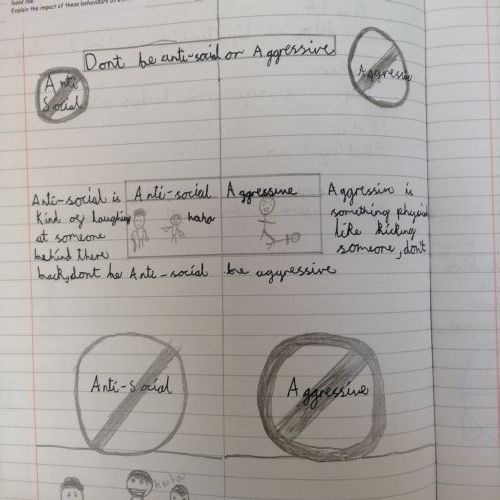 Explain the impact of these behaviours on
Dont be anti-social or Aggressive
Anti
Social
Aggressive
Anti-social is
kind of laughing
at someone
behind there
back,dont be Anti-social
Anti-social Aggressive
haha
Aggressive is
something physical
like kicking
someone,dont
be aggressive
Anti-Social
Aggressive
haha